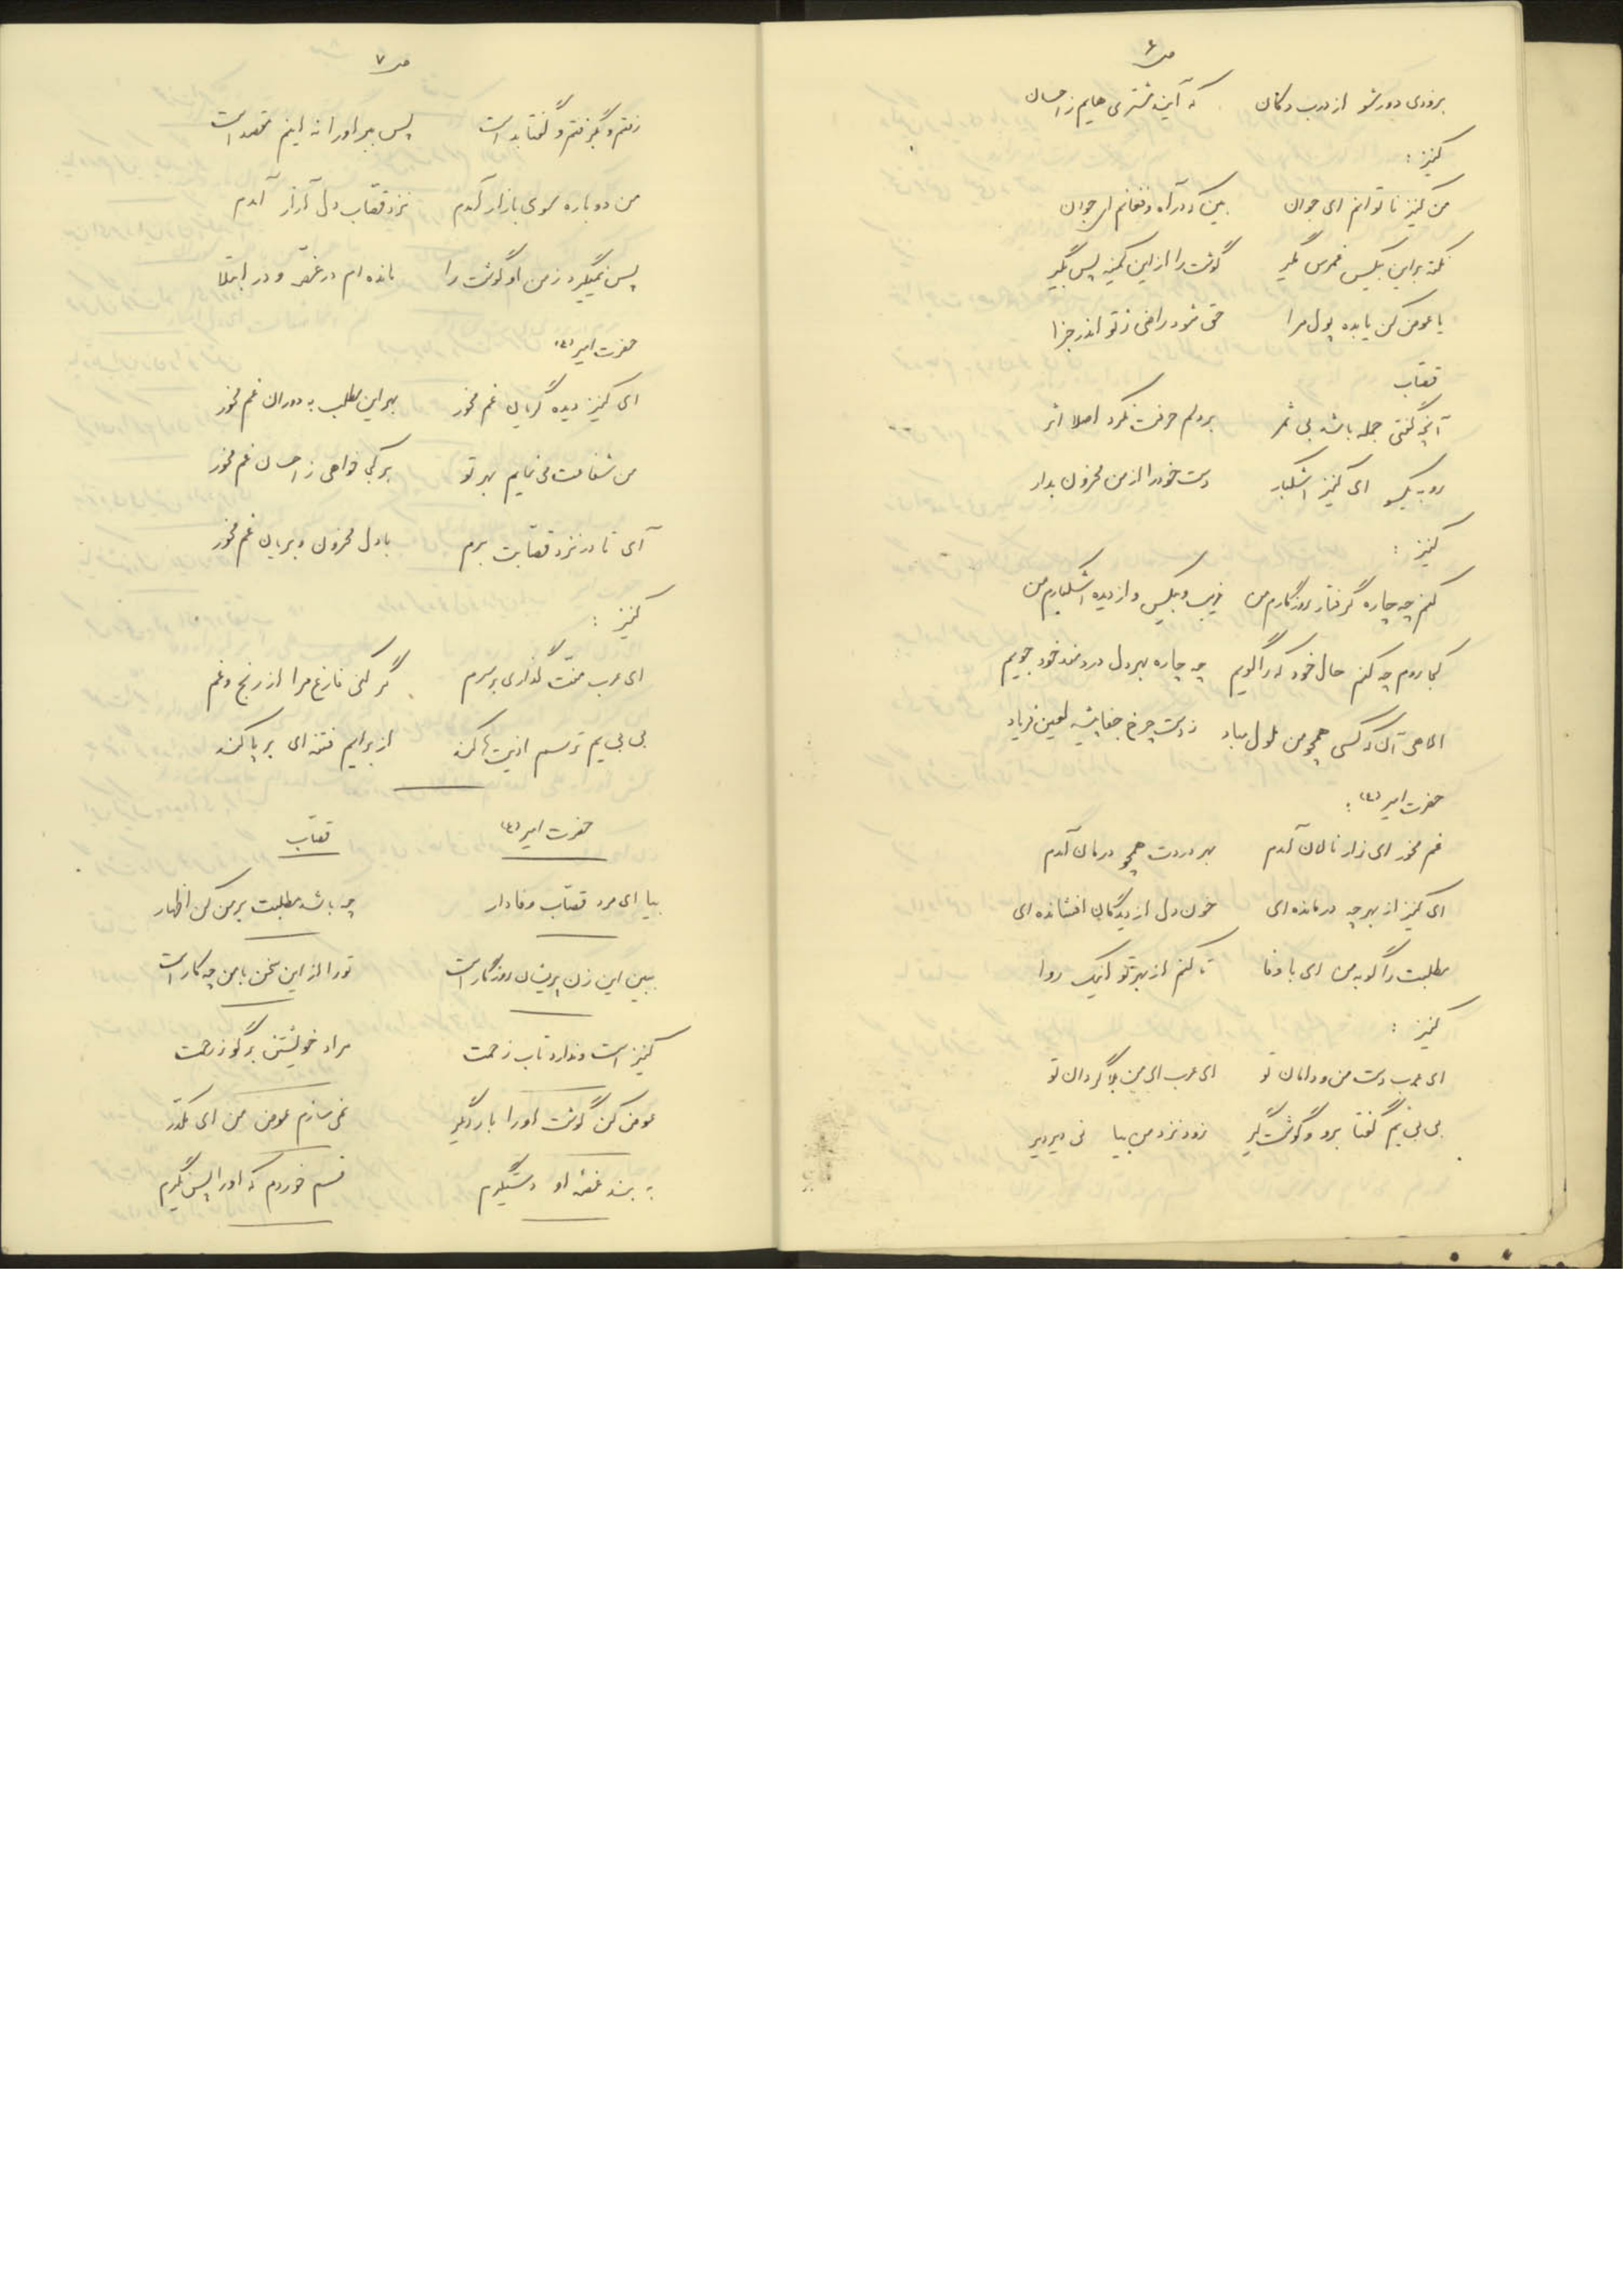 ص ۶
برو زدی دور شو از درب دکان که آیند مشتری هایم ز احسان
کنیز :
من کنیز ناتوانم ای جوان بین که در آه و فغانم ای جوان
نکته بر این بیکس مگیر گوشت را از این کمینه پس بگیر
یا عوض کن یا بده پول مرا حق شود راضی ز تو اندر جزا
قصّاب
آنچه گفتی جمله باشد بی ثمر بر دلم حرفت نکرد اصلا اثر
رو به یکسو ای کنیز اشکبار دست خود را از من محزون بدار
کنیز :
کنم چه چاره گرفتار روزگارم من غریب و بیکس و از دیده اشکبارم من
کجا روم چه کنم حال خود که را گویم چه چاره بهر دل دردمند خود جویم
الهی آنکه کسی همچو من ملول مباد ز دست چرخ جفاپیشه لعین فریاد
حضرت امیر (ع) :
غم مخور ای زار نالان آمدم بهر دردت همچو درمان آمدم
ای کنیز از بهر چه درمانده ای خون دل از دیدگان افشانده ای
مطلبت را گو به من ای با وفا تا کنم از بهر تو اینک روا
کنیز :
ای عرب دست من و دامان تو ای عرب ای من بلا گردان تو
بی بی یم گفتا برو گوشت گیر زود نزد من بیا نی دیر دیر
ص ۷
رفتم و بگرفتم و گفتا بد است پس ببر او را نه اینم مقصد است
من دوباره سوی بازار آمدم نزد قصّاب دل آزار آمدم
پس نمیگیرد ز من او گوشت را مانده ام در غصّه و در ابتلا
حضرت امیر (ع)
ای کنیز دیده گریان غم مخور بهر این مطلب به دوران غم مخور
من شفاعت می نمایم بهر تو هر که خواهی ز احسان غم مخور
آی تا در نزد قصّابت برم با دل محزون و بریان غم مخور
کنیز :
ای عرب منّت گذاری بر سرم گر کنی فارغ مرا از رنج و غم
بی بی یم ترسم اذیت ها کند از برایم فتنه ای بر پا کند
حضرت امیر (ع) قصّاب
بیا ای مرد قصّاب وفادار چه باشد مطلبت بر من کن اظهار
ببین این زن پریشان روزگار است تو را از این سخن با من چه کار است
کنیز است و ندارد تاب زحمت مراد خویشتن برگو ز رحمت
عوض کن گوشت او را بار دیگر نمی سازم عوض من ای مکدّر
به بند غصّه او دستگیرم قسم خوردم که او را پس نگیرم